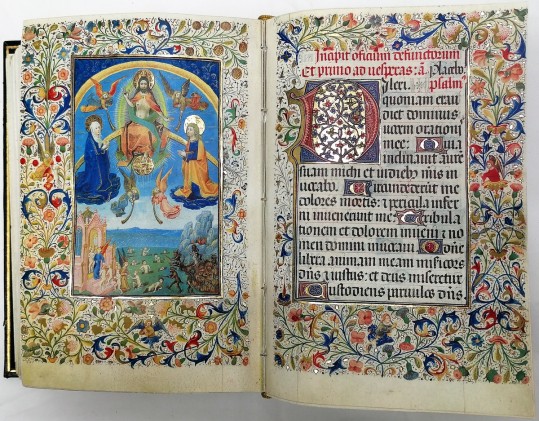 Incipit officium defunctorum
Et primo ad vesperas: a. Placebo
Dilexi psalm
quoniam exau
diet dominus
vocem oration
mee: Quia
inclinavit aure
suam michi et in dieb meis in
vocabo: Circumdederūt me
dolores mortis: et pericula infer
ni invenerunt me Tribula
tionem et dolorem inveni et no
men domini invocavi O dñe
libera animam meam misericors
dñs et iustus: et deus miseretur
Custodiens parvulos dñs